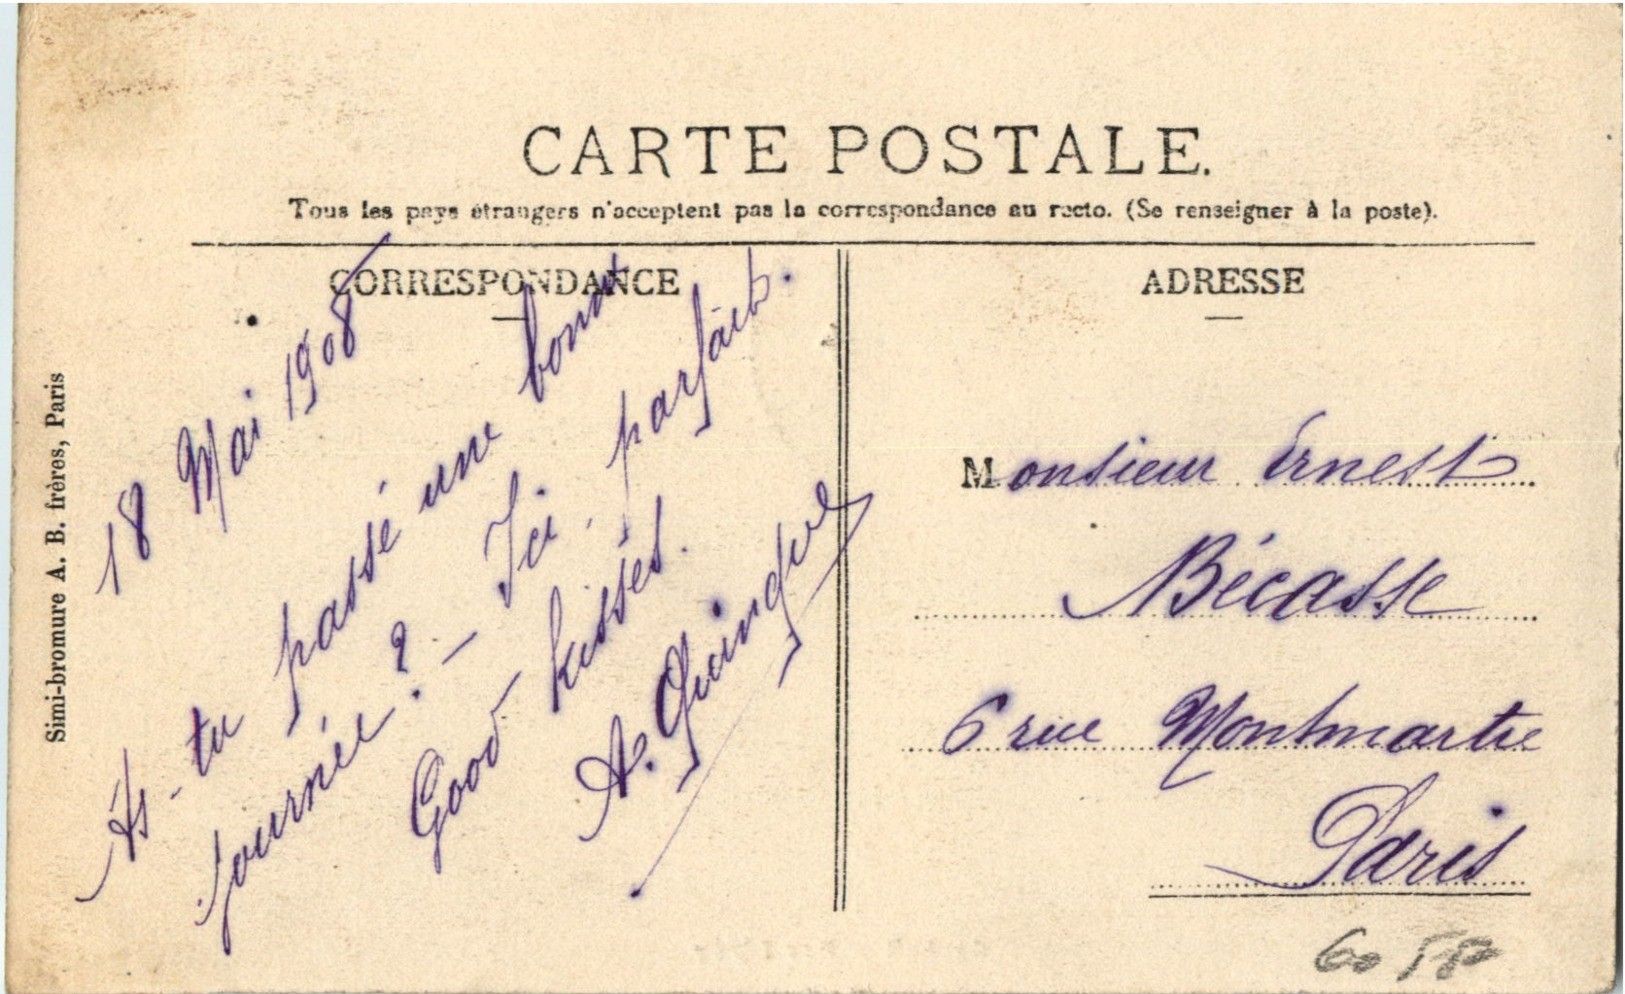 CARTE POSTALE.
Tous les pays étrangers n'acceptent pas la correspondance au recto. (Se renseigner à la poste).
CORRESPONDANCE
18 Mai 1908
As-tu passé une bonne
journée? - Ici parfait.
Good kisses.
A.
ADRESSE
Monsieur Ernest
Bécasse
6 rue Montmartre
Paris
Simi-bromure A. B. frères, Paris
60